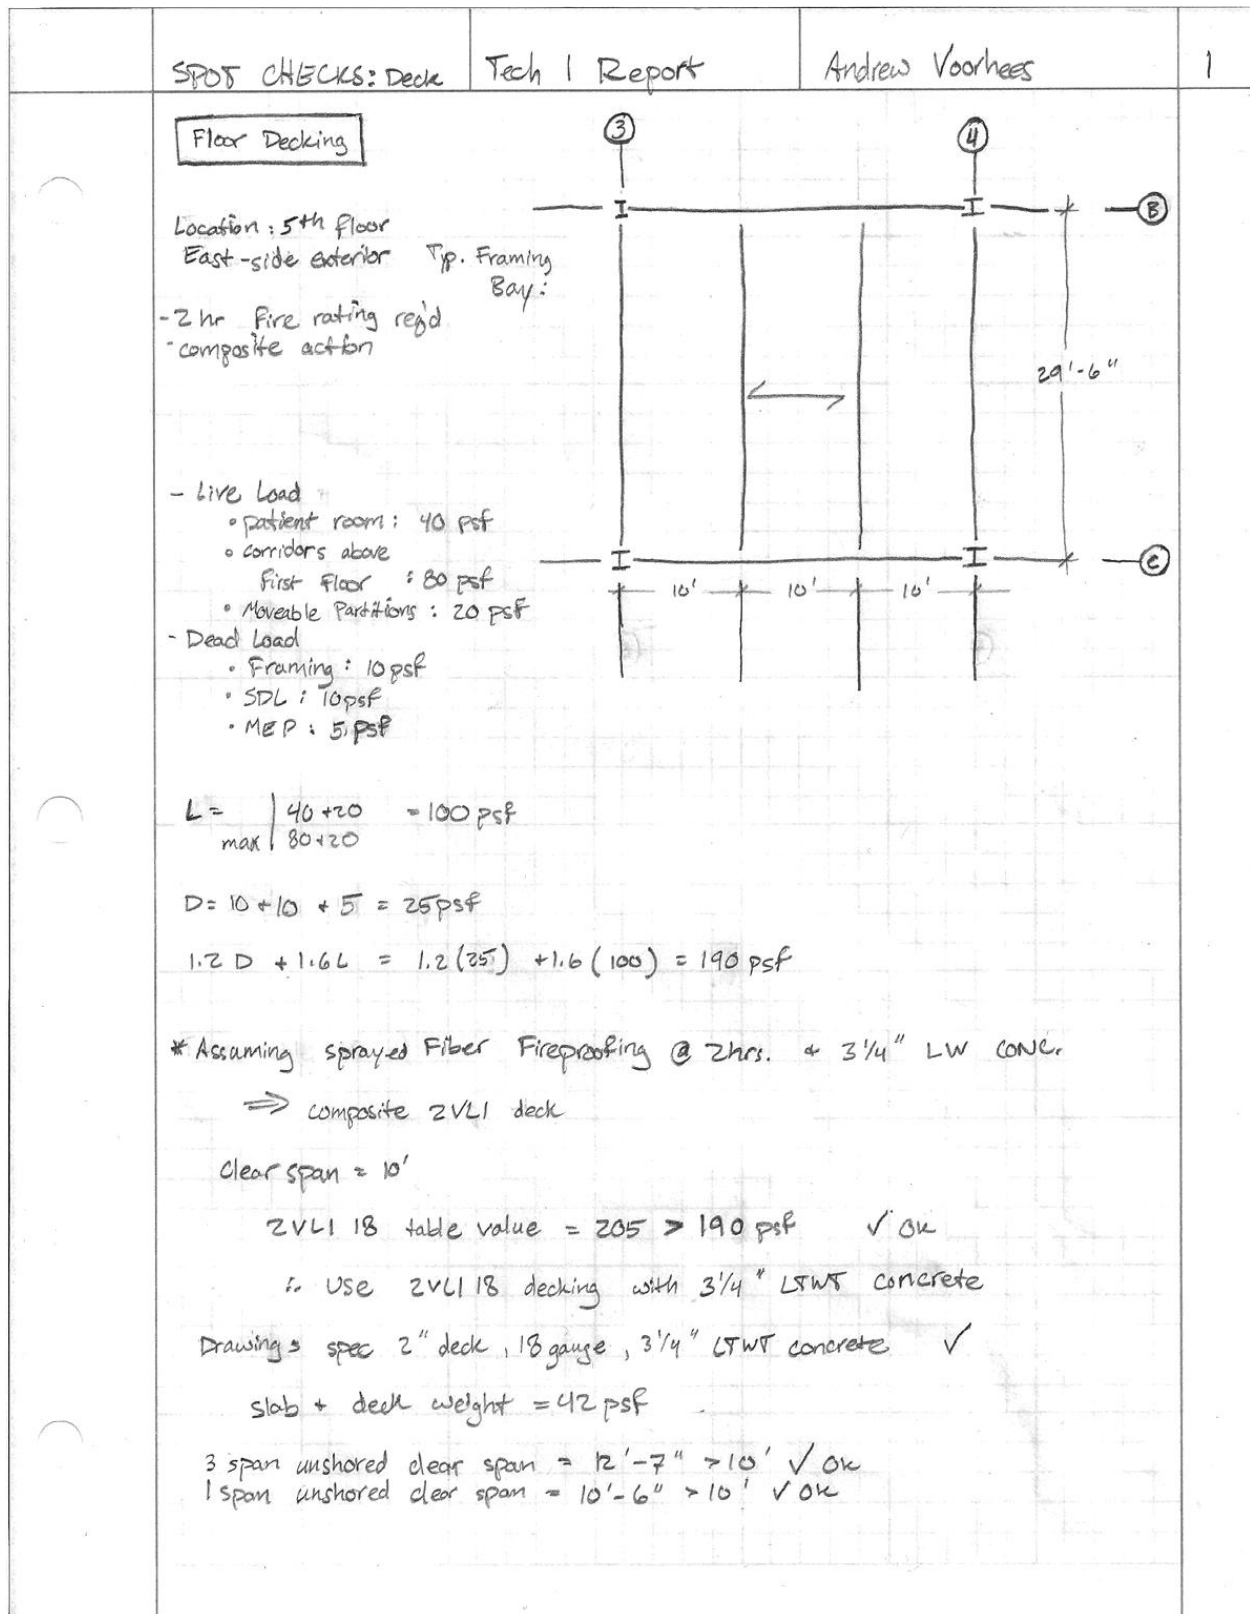 SPOT CHECKS: Deck
Tech 1 Report
Andrew Voorhees
1
Floor Decking
3
4
B
Location: 5th floor
East-side exterior
Typ. Framing
Bay:
- 2 hr fire rating req'd
- composite action
29'-6"
- Live Load
• patient room: 40 psf
• corridors above
first floor : 80 psf
• Moveable Partitions: 20 psf
C
10'
10'
10'
- Dead Load
• Framing: 10 psf
• SDL: 10 psf
• MEP: 5 psf
L = max | 40+20 = 100 psf
80+20
D = 10 + 10 + 5 = 25 psf
1.2 D + 1.6 L = 1.2 (25) + 1.6 (100) = 190 psf
* Assuming sprayed Fiber Fireproofing @ 2hrs. + 3 1/4" LW CONC.
⇒ composite 2VLI deck
Clear span = 10'
2VLI 18 table value = 205 > 190 psf ✓ OK
∴ Use 2VLI 18 decking with 3 1/4" LTWT concrete
Drawings spec 2" deck, 18 gauge, 3 1/4" LTWT concrete ✓
slab + deck weight = 42 psf
3 span unshored clear span = 12'-7" > 10' ✓ OK
1 span unshored clear span = 10'-6" > 10' ✓ OK